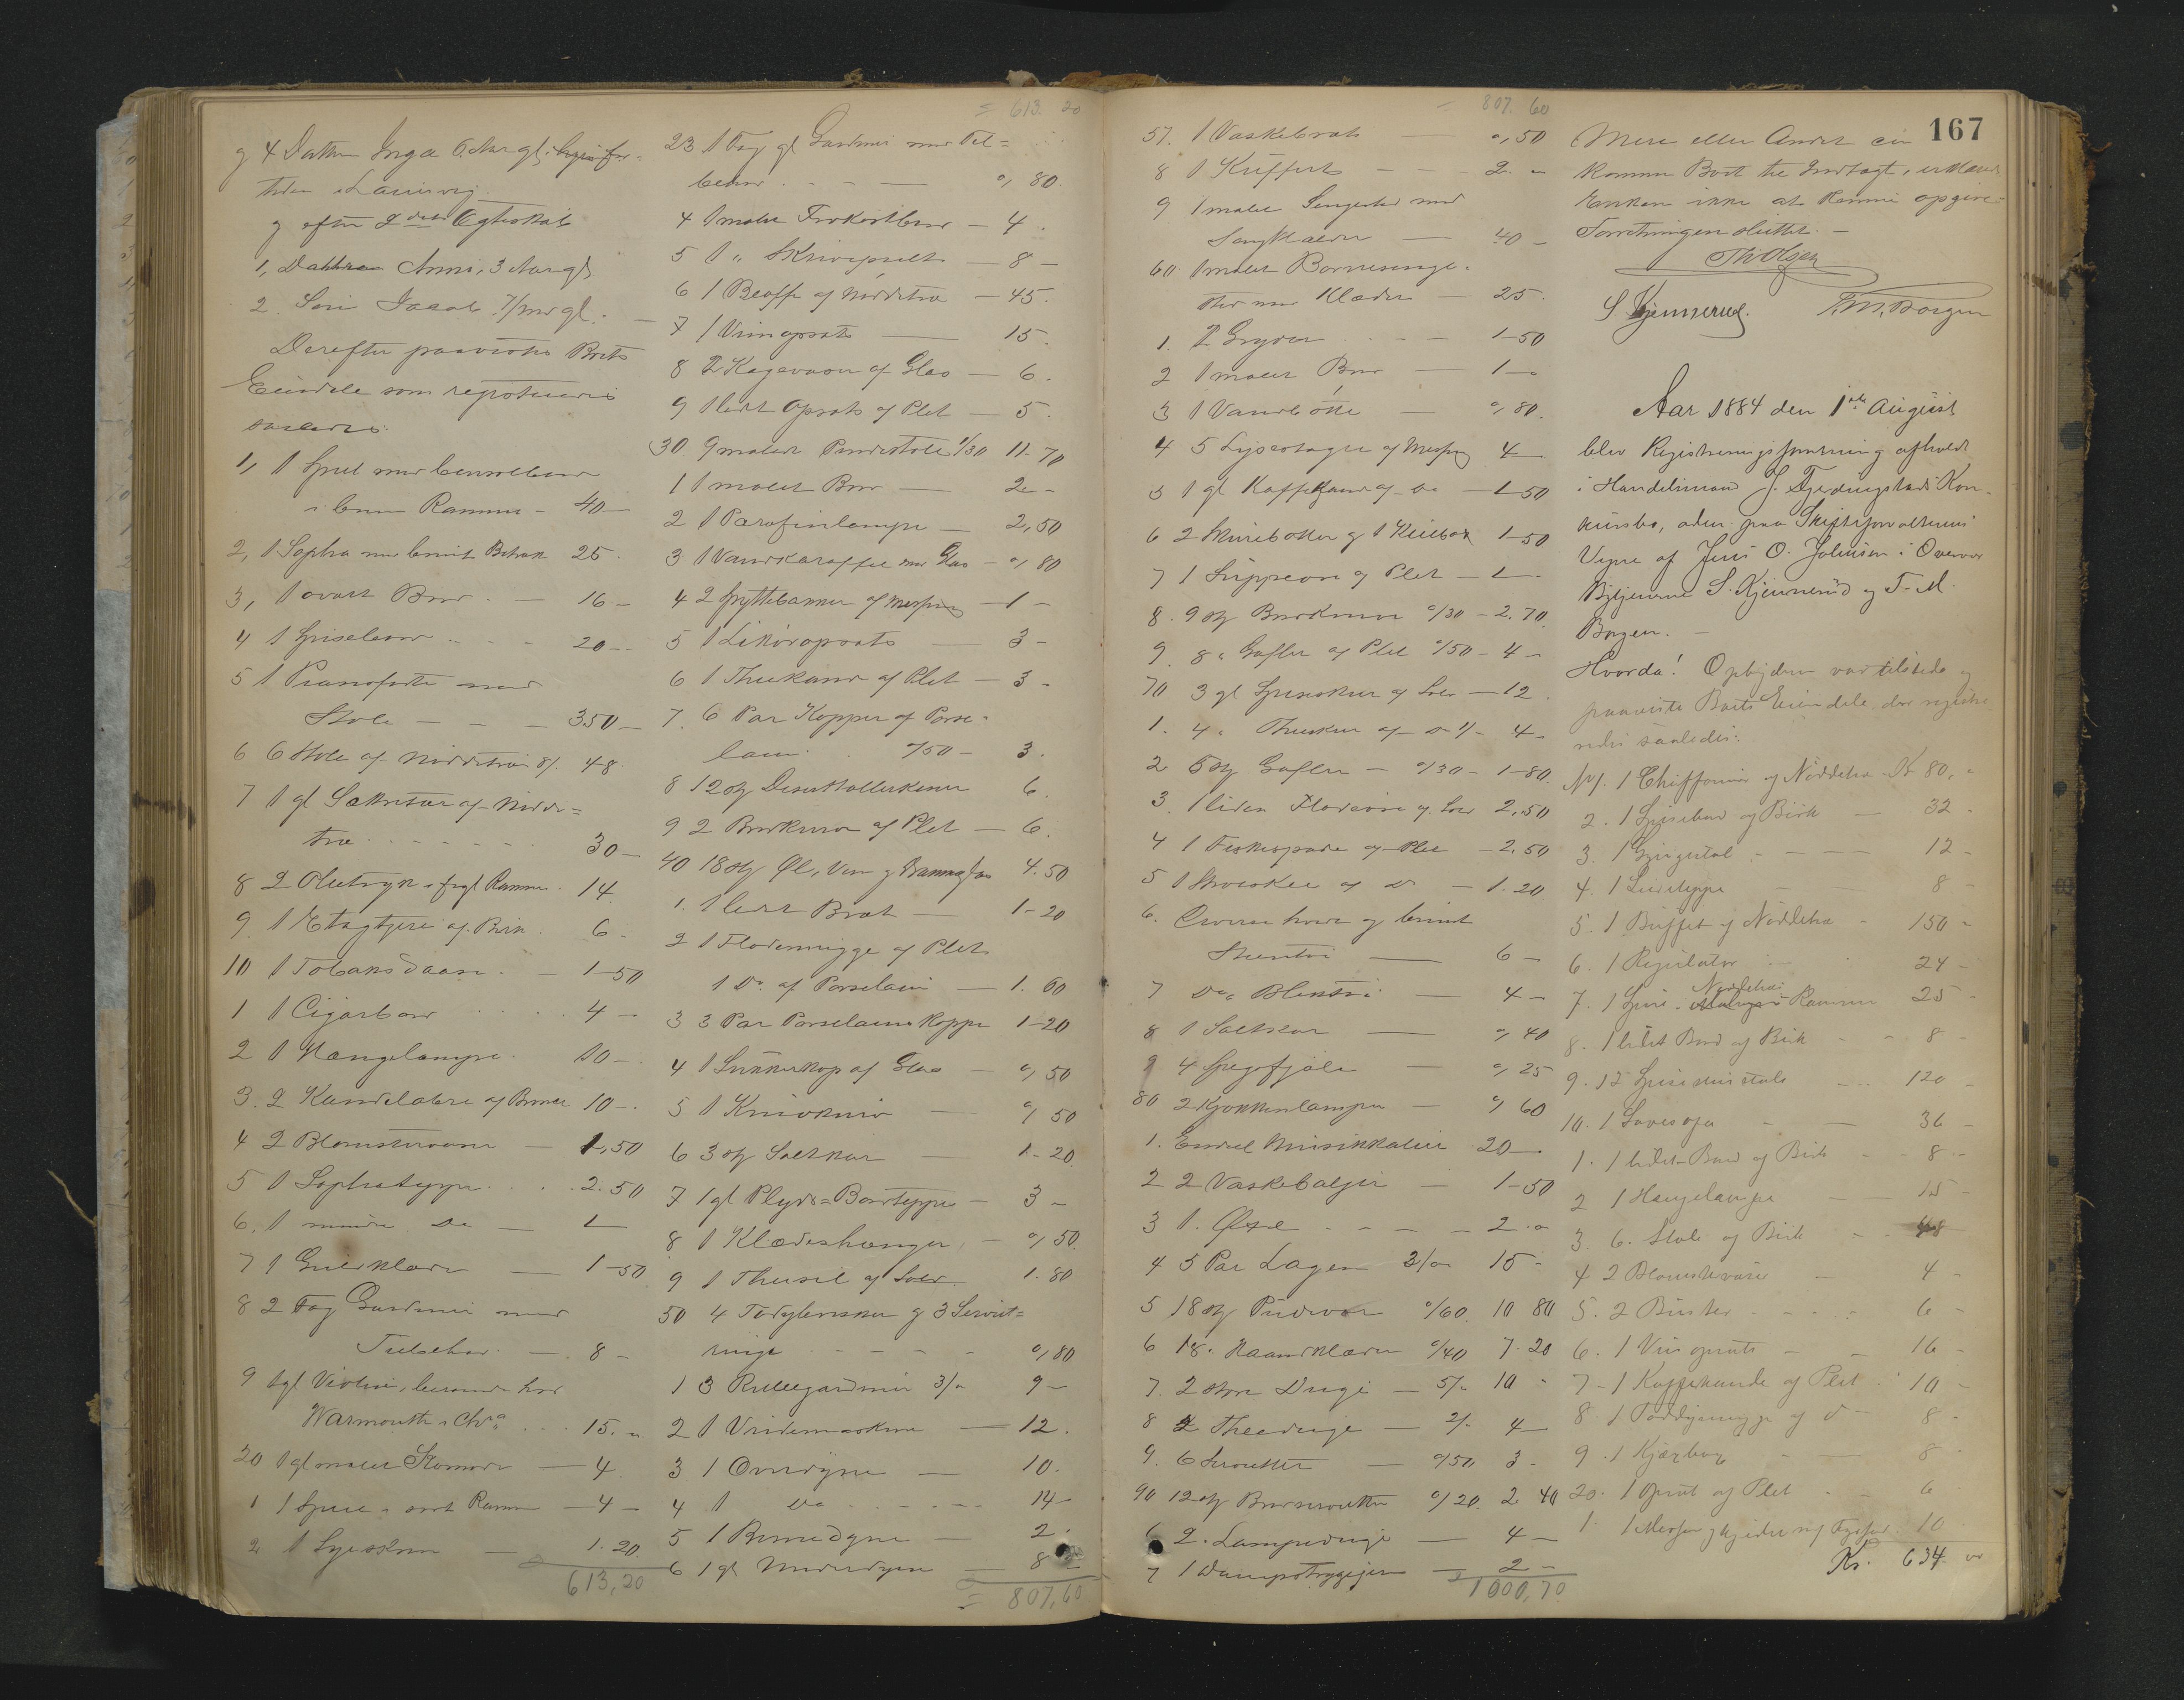 g 4 Datter Inga 6 Aar gl.
tiden i Laurvig.
g efter 2det Ægteskab
1, Datter Anni, 3 Aar gl.
2. Søn Jacob 7/ gl.
Derefter paavistes Boets
Eiendele som registreredes
saaledes:
1, 1 Speil med
i brun Ramme - 40 -
2, 1 Sopha med brunt Betræk 25.
3, 1 ovalt Bord - 16 -
4 1 Spisebord - 20 -
5 1 Pianoforte med
Stole - 350 -
6 6 Stole af Nøddetræ 8/. 48.
7 1 gl Sekretær af Nødde=
træ 30 -
8 2 Olietryk i Ramme. 14.
9. 1 Etagere af Birk. 6 -
10 1 Tobaksdaase. - 1-50
1 1 Cigarbord 4 -
2 1 Hængelampe. 10 -
3. 2 Kandelabre af Bronce 10 -.
4 2 Blomstervaser - 1,50
5 1 Sophateppe 2.50
6. 1 mindre Do - 1 -
7 1 Gulvklæde - 1-50
8 2 Fag Gardiner med
Tilbehør - 8 -
9 1 gl Violin,
Warmouth & Co. 15. "
20 1 gl malet Komode - 4
1 1 Speil i sort Ramme - 4 -
2 1 - 1.20.
613,20
= 613. 20
23 1 Fag gl Gardiner med Til=
behør - 0,80.
4 1 malet Frokostbord - 4.
5 1 " Skrivepult - 8 -
6 1 Buffe af Nøddetræ - 45.
7 1 Vinopsats - 15.
8 2 Kagevaser af Glas - 6.
9 1 lidet Opsats af Plet - 5.
30 9 malede Pindestole 1/30 11-70
1 1 malet Bord - 2 -
2 1 Parafinlampe - 2,50
3 1 Vandkaraffel med Glas - 0,80
4 2 Spyttebakker af Messing - 1 -
5 1 Likøropsats - 3 -
6 1 Theekande af Plet - 3 -
7. 6 Par Kopper af Porse=
lain. 0/50 - 3.
8 12 stk Deserttallerkener 6.
9 2 Bordknive af Plet - 6.
40 18 stk Øl, Vin g Dramglas 4.50
1. 1 lidet Bræt - 1-20
2 1 Flødemugge af Plet
1 Do. af Porselain - 1.60
3 3 Par Porselains Kopper 1-20
4 1 Sukkerkop af Glas - 0,50
5 1 - 0,50
6 3 stk Saltkar - 1-20
7 1 gl Plyds=Bordteppe - 3 -
8 1 Klædeshænger - 0,50.
9 1 Thesil af Sølv. 1.80
50 4 g 3 Serviet=
ringe - 0,80
1 3 Rullegardiner 3/" 9 -
2 1 Vridemaskine - 12.
3. 1 Overdyne - 10.
4 1 Do 14 -
5 1 2.
6 1 gl Underdyne - 8 -
= 807,60
- 807. 60
57. 1 Vaskebræt - 0,50
8 1 Kuffert - 2. "
9 1 malet Sengested med
Sengklæder - 40 -
60 1 malet Børnesenge=
sted med Klæder - 25.
1. 2 Gryder - 1-50
2 1 malet Bord - 1 -
3 1 Vandbøtte - 0,80.
4 5 Lysestager af Messing 4 -
5 1 gl Kaffekande af Do - 1-50
6 2 g 1 1-50
7 1 Suppeøse af Plet - 1 -
8. 9 stk Bordknive 0/30 - 2.70.
9. 8 " Gafler af Plet 0/50 - 4 -
70 3 gl Spiseskeer af Sølv - 12.
1. 4 " Theskeer af Do 1/- 4 -
2 6 stk Gafler - 0/30 - 1-80.
3. 1 liden af Sølv 2,50
4 1 Fiskespade af Plet - 2,50
5 1 af Do - 1.20
6. hvidt g brunt
Stentøi - 6 -
7 Do. Bliktøi - 4 -
8 1 Saltkar - 0,40
9 4 - 0,25
80 2 Kjøkkenlamper - 0,60
1. Endel Musikkalier 20 -
2 2 Vaskebaljer - 1-50
3 1. Øxe - 2. "
4 5 Par Lagen 3/" 15 -
5 18 stk Pudevar 0/60. 10 80
6 18 " Haandklæder 0/40 7.20
7. 2 store Duge - 5/- 10 "
8 2 Theeduge - 2/. 4 -
9. 6 Servietter - 0/50 3 -
90 12 stk 0/20. 2 40
6 2. Lampeduge - 4 -
7 1 - 2 -
= 1000,70
167
Mere eller Andet end
kommer Boet til Indtægt, erklærede
Enken ikke at kunne opgive.
Forretningen sluttet. -
Th Olsen
S. Kjennerud. F. M. Borgen
Aar 1884 den 1ste August
blev Registreringsforretning afholdt
i Handelsmand J. Fjerdingstads Kon-
kursbo, uden paa Skifteforvalterens
Vegne af Jens O. Johnsen i Overvær
S. Kjennerud g F. M.
Borgen. -
Hvorda! Opbyderen var tilstede g
paaviste Boets Eiendele, der registre
redes saaledes:
No 1. 1 Chiffonier af Nøddetræ Kr 80, "
2. 1 Spisebord af Birk - 32 -
3. 1 Gyngestol - 12 -
4. 1 - 8 -
5. 1 Buffet af Nøddetræ - 150 -
6. 1 Regulator 24 -
7. 1 Speil i Nøddetræs Ramme 25 -
8. 1 lidet Bord af Birk - 8 -
9. 12 Spisestuestole 120 -
10. 1 - 36 -
1. 1 lidet Bord af Birk - 8 -
2 1 Hængelampe - 15 -
3. 6. Stole af Birk - 48
4 2 Blomstervaser - 4 -
5. 2 Buster 6 -
6. 1 Vinopsats - 16 -
7 - 1 Kaffekande af Plet 10 -
8. 1 Toddymugge af Do 8 -
9. 1 - 8 -
20. 1 Opsats af Plet - 6
1. 1 10
Kr. 634. "